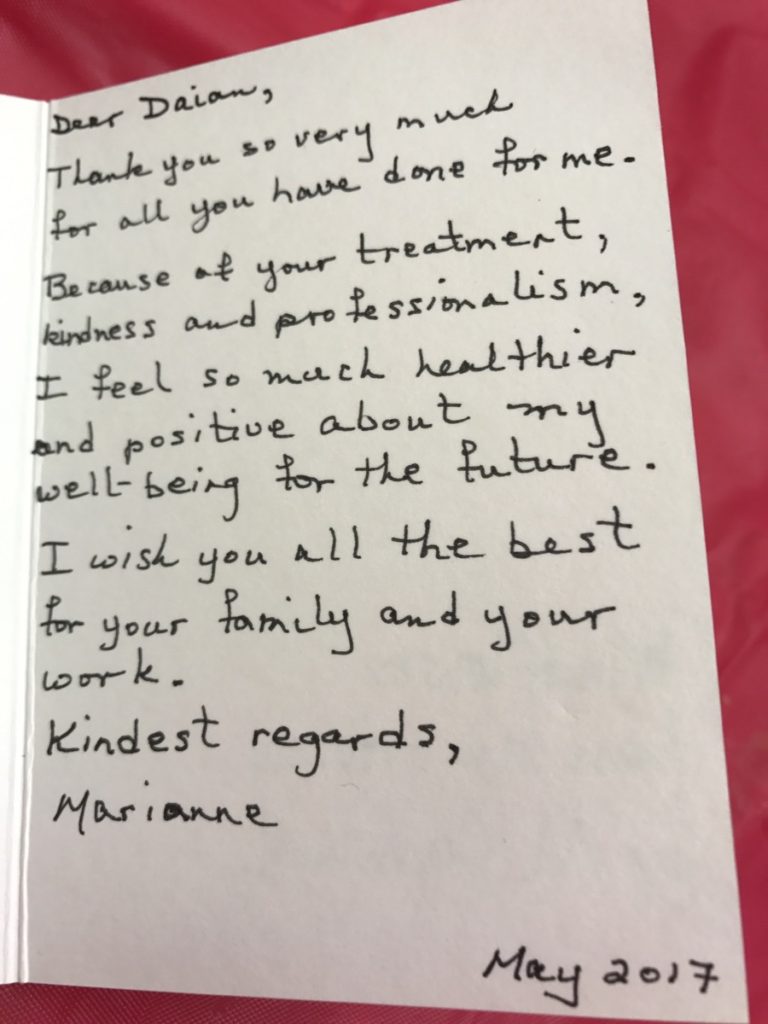 Dear Daian,
Thank you so very much
for all you have done for me.
Because of your treatment,
kindness and professionalism,
I feel so much healthier
and positive about my
well-being for the future.
I wish you all the best
for your family and your
work.
Kindest regards,
Marianne
May 2017